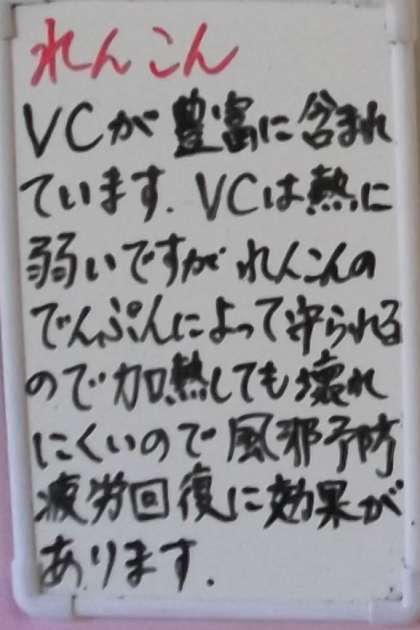 れんこん
VCが豊富に含まれ
ています. VCは熱に
弱いですがれんこんの
でんぷんによって守られる
ので加熱しても壊れ
にくいので風邪予防
疲労回復に効果が
あります.